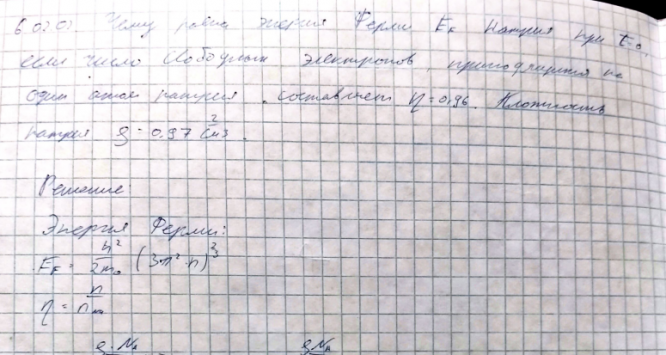 6.02.02. Чему равна энергия Ферми E_F натрия при t=0,
если число свободных электронов, приходящихся на
один атом натрия, составляет η = 0,96. Плотность
натрия ρ = 0,97 г/см3.
Решение:
Энергия Ферми:
E_F = ħ²/2m₀ (3π²·n)^2/3
η = n/n
ρ·N_A ρN_A